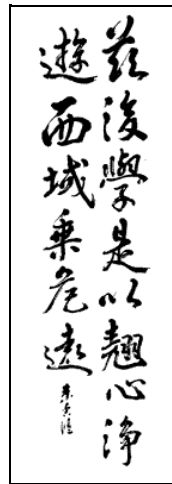 茲後學是以翹心淨
遊西域乘危遠